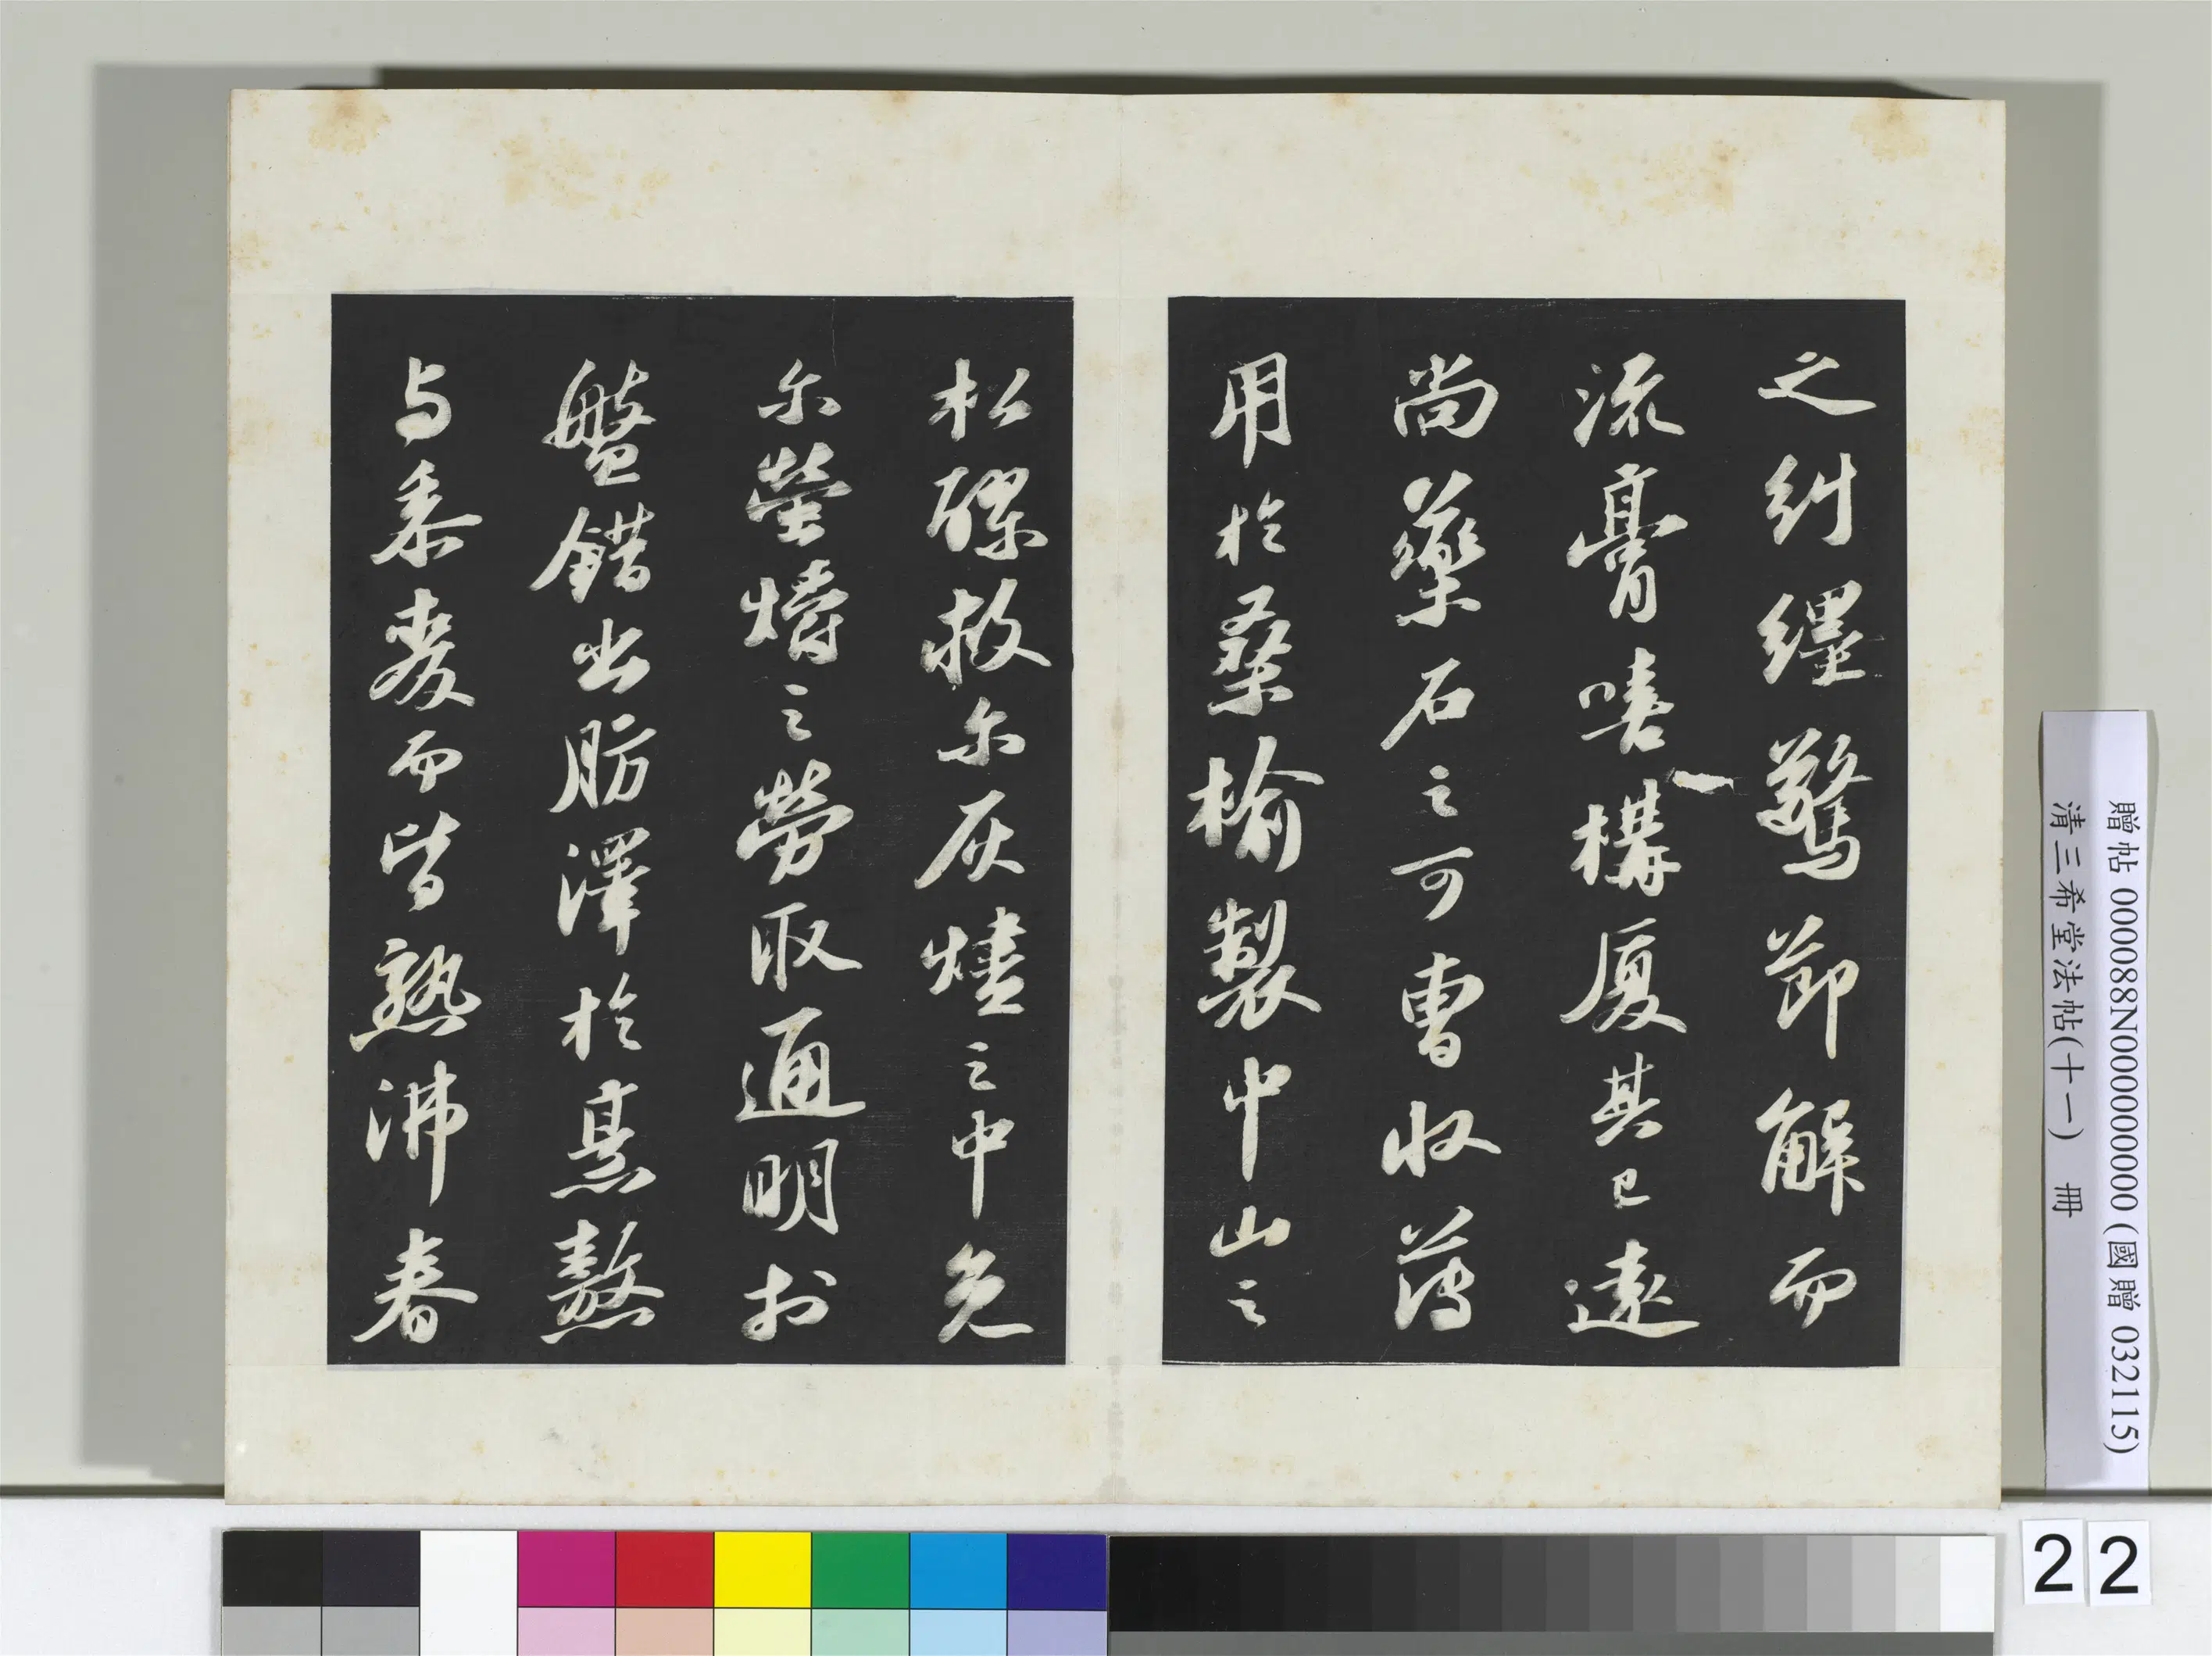 之糾纏驚節解而
流膏嗟構厦其已遠
尚藥石之可曹收薄
用於桑榆製中山之
松醪救尔灰燼之中免
尔螢爝之勞取通明於
盤錯出肪澤於烹熬
与黍麥而皆熟沸舂
贈帖 000088N000000000 (國贈 032115)
清三希堂法帖(十一) 冊
22